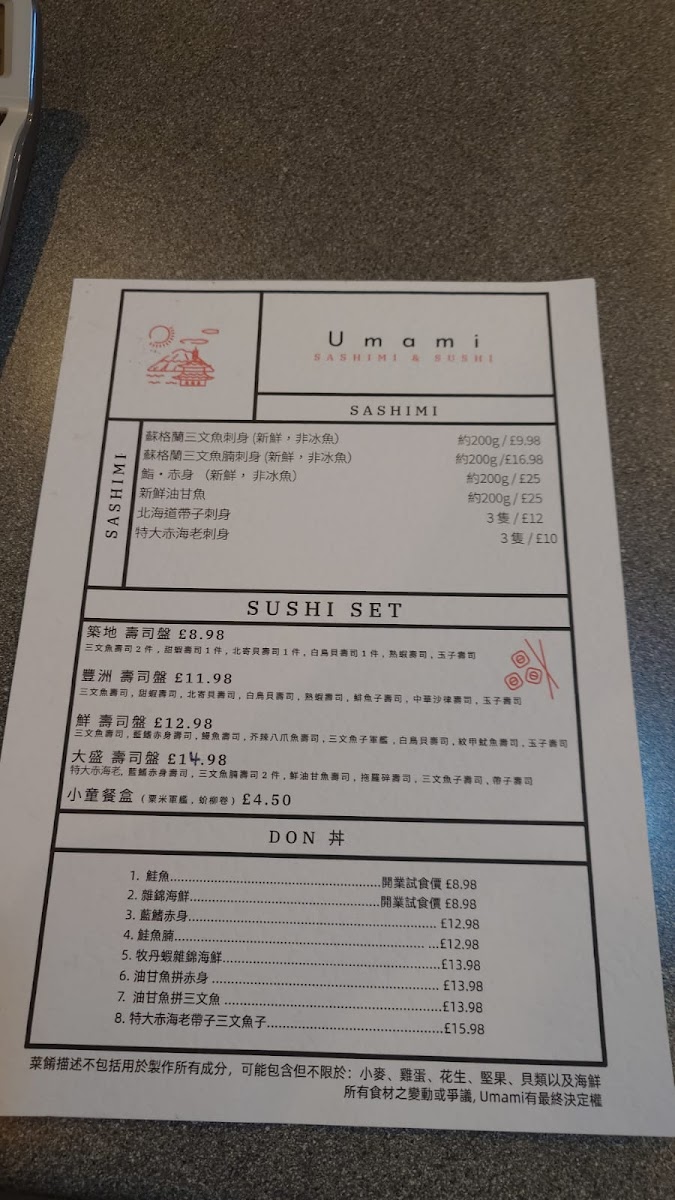 Umami
SASHIMI & SUSHI
SASHIMI
SASHIMI
蘇格蘭三文魚刺身 (新鮮，非冰魚) 約200g / £9.98
蘇格蘭三文魚腩刺身 (新鮮，非冰魚) 約200g /£16.98
鮨・赤身 （新鮮， 非冰魚） 約200g / £25
新鮮油甘魚 約200g / £25
北海道帶子刺身 3 隻 / £12
特大赤海老刺身 3 隻 / £10
SUSHI SET
築地 壽司盤 £8.98
三文魚壽司 2 件 , 甜蝦壽司 1 件 , 北寄貝壽司 1 件 , 白鳥貝壽司 1 件 , 熟蝦壽司 , 玉子壽司
豐洲 壽司盤 £11.98
三文魚壽司 , 甜蝦壽司 , 北寄貝壽司 , 白鳥貝壽司 , 熟蝦壽司 , 鯡魚子壽司 , 中華沙律壽司 , 玉子壽司
鮮 壽司盤 £12.98
三文魚壽司 , 藍鰭赤身壽司 , 鰻魚壽司 , 芥辣八爪魚壽司 , 三文魚子軍艦 , 白鳥貝壽司 , 紋甲魷魚壽司 , 玉子壽司
大盛 壽司盤 £14.98
特大赤海老, 藍鰭赤身壽司 , 三文魚腩壽司 2 件 , 鮮油甘魚壽司 , 拖羅碎壽司 , 三文魚子壽司 , 帶子壽司
小童餐盒 ( 粟米軍艦 , 蚧柳卷 ) £4.50
DON 丼
1. 鮭魚......................................................開業試食價 £8.98
2. 雜錦海鮮.................................................開業試食價 £8.98
3. 藍鰭赤身................................................................ £12.98
4. 鮭魚腩................................................................ ...£12.98
5. 牧丹蝦雜錦海鮮........................................................£13.98
6. 油甘魚拼赤身 .......................................................... £13.98
7. 油甘魚拼三文魚 ........................................................£13.98
8. 特大赤海老帶子三文魚子.............................................£15.98
菜餚描述不包括用於製作所有成分，可能包含但不限於：小麥、雞蛋、花生、堅果、貝類以及海鮮
所有食材之變動或爭議, Umami有最終決定權